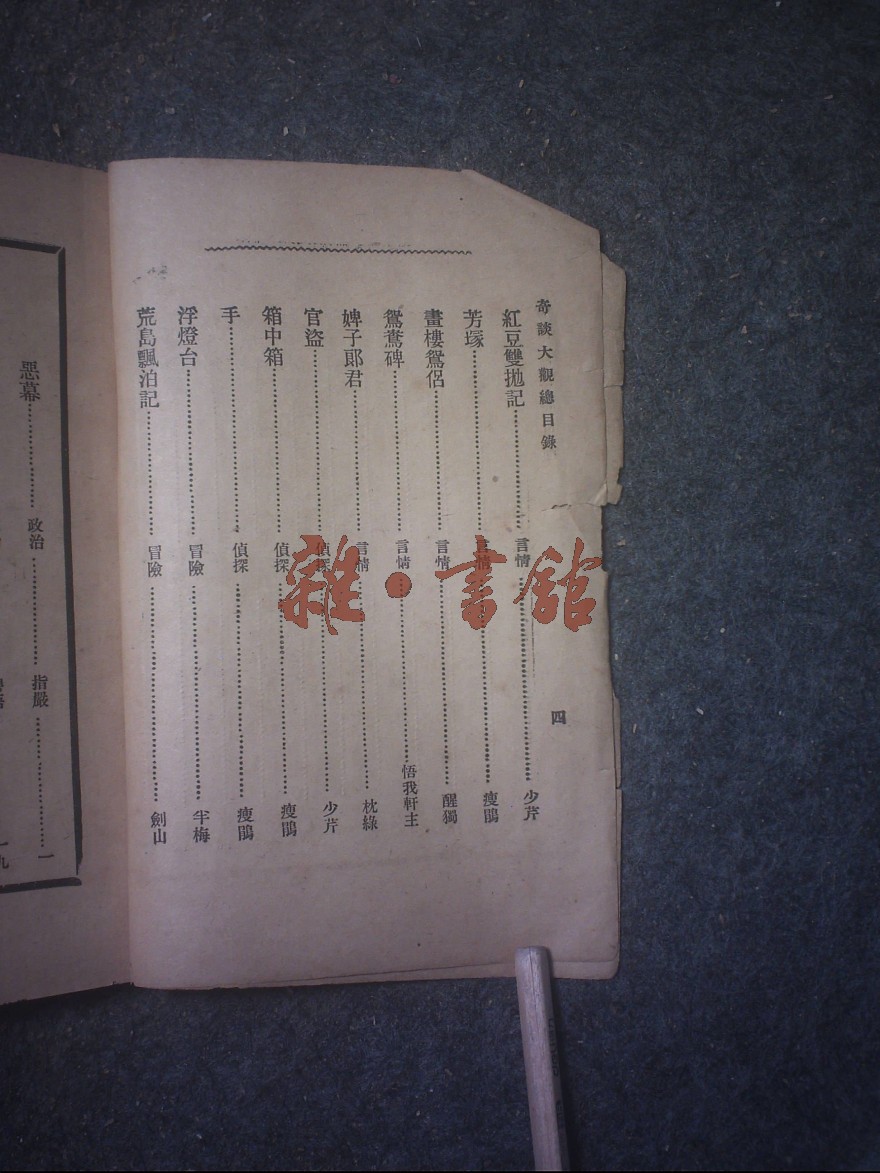 奇談大觀總目錄
四
紅豆雙拋記 言情 少芹
芳塚 言情 瘦鵑
畫樓鴛侶 言情 醒獨
鴛鴦碑 言情 悟我軒主
婢子郎君 言情 枕綠
官盜 偵探 少芹
箱中箱 偵探 瘦鵑
手 偵探 瘦鵑
浮燈台 冒險 半梅
荒島飄泊記 冒險 劍山
惡幕 政治 指嚴 一
一九
雜·書館